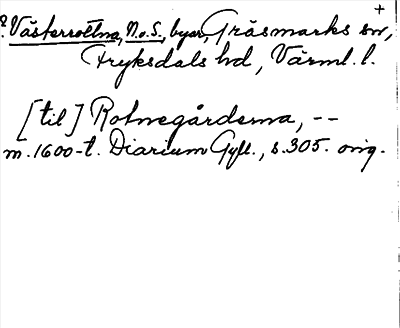 +
?. Västerrottna, N. o. S., byar, Gräsmarks sn,
Fryksdals hd, Värml. l.
[til] Rotnegårderna, --
m. 1600-t. Diarium Gyll., s. 305. orig.